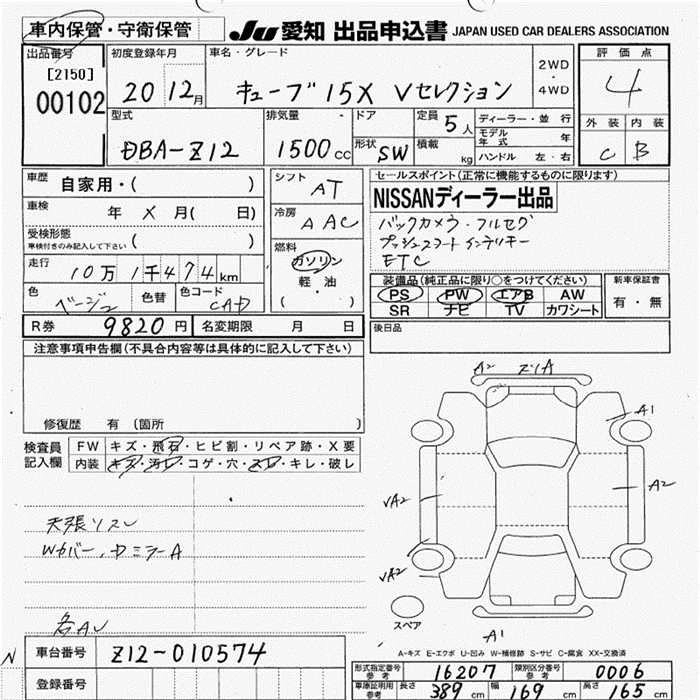 車内保管・守衛保管
JU 愛知 出品申込書 JAPAN USED CAR DEALERS ASSOCIATION
出品番号
[2150]
00102
初度登録年月
20 12月
車名・グレード
キューブ 15X Vセレクション
2WD
・
4WD
評価点
4
外装 内装
C B
型式
DBA-Z12
排気量
1500cc
ドア
形状
SW
定員
5人
積載
kg
ディーラー・並行
モデル年式 年
ハンドル 左・右
車歴 自家用・( )
車検 年 X 月( 日)
受検形態
車検付きのみ記入して下さい ( )
走行
10万1千474km
色
ベージュ
色替
色コード
CAD
シフト
AT
冷房
AAC
燃料
ガソリン
軽・油
( )
セールスポイント(正常に機能するものに限ります)
NISSANディーラー出品
バックカメラ・フルセグ
プッシュスタート インテリキー
ETC
装備品(純正品に限り○をつけてください)
PS PW エアB AW
SR ナビ TV カワシート
新車保証書
有・無
後日品
R券 9820円 名変期限 月 日
注意事項申告欄(不具合内容等は具体的に記入して下さい)
修復歴 有 (箇所 )
検査員
記入欄
FW キズ・飛石・ヒビ割・リペア跡・X要
内装 キズ・汚レ・コゲ・穴・スレ・キレ・破レ
天張リスレ
Wカバー、
ミラーA
各AU
A2
A1
A2
A2
A2
A1
スペア
A-キズ E-エクボ U-凹み W-補修跡 S-サビ C-腐食 XX-交換済
N
車台番号 Z12-010574
登録番号
形式指定番号
参考
16207
類別区分番号
参考
0006
車庫証明用
参考
長さ 389cm 幅 169cm 高さ 165cm